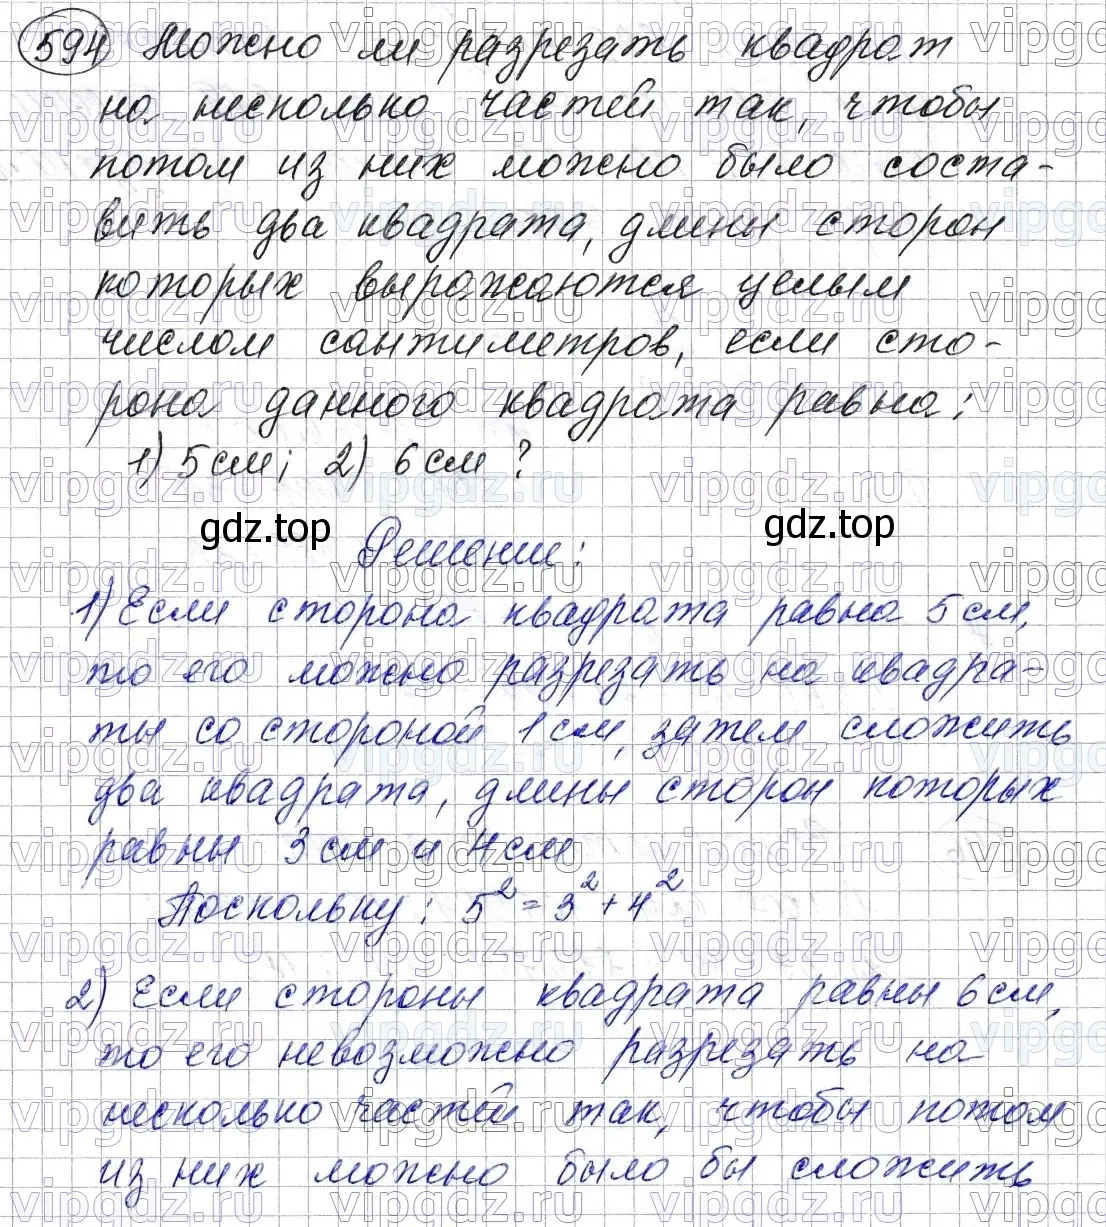 594 Можно ли разрезать квадрат
на несколько частей так, чтобы
потом из них можно было соста-
вить два квадрата, длины сторон
которых выражаются целым
числом сантиметров, если сто-
рона данного квадрата равна:
1) 5 см; 2) 6 см ?
gdz.top
gdz.top
Решение:
1) Если сторона квадрата равна 5 см,
то его можно разрезать на квадра-
ты со стороной 1 см, затем сложить
два квадрата, длины сторон которых
равны 3 см и 4 см
Поскольку: 5² = 3² + 4²
2) Если стороны квадрата равны 6 см,
то его невозможно разрезать на
несколько частей так, чтобы потом
из них можно было бы сложить